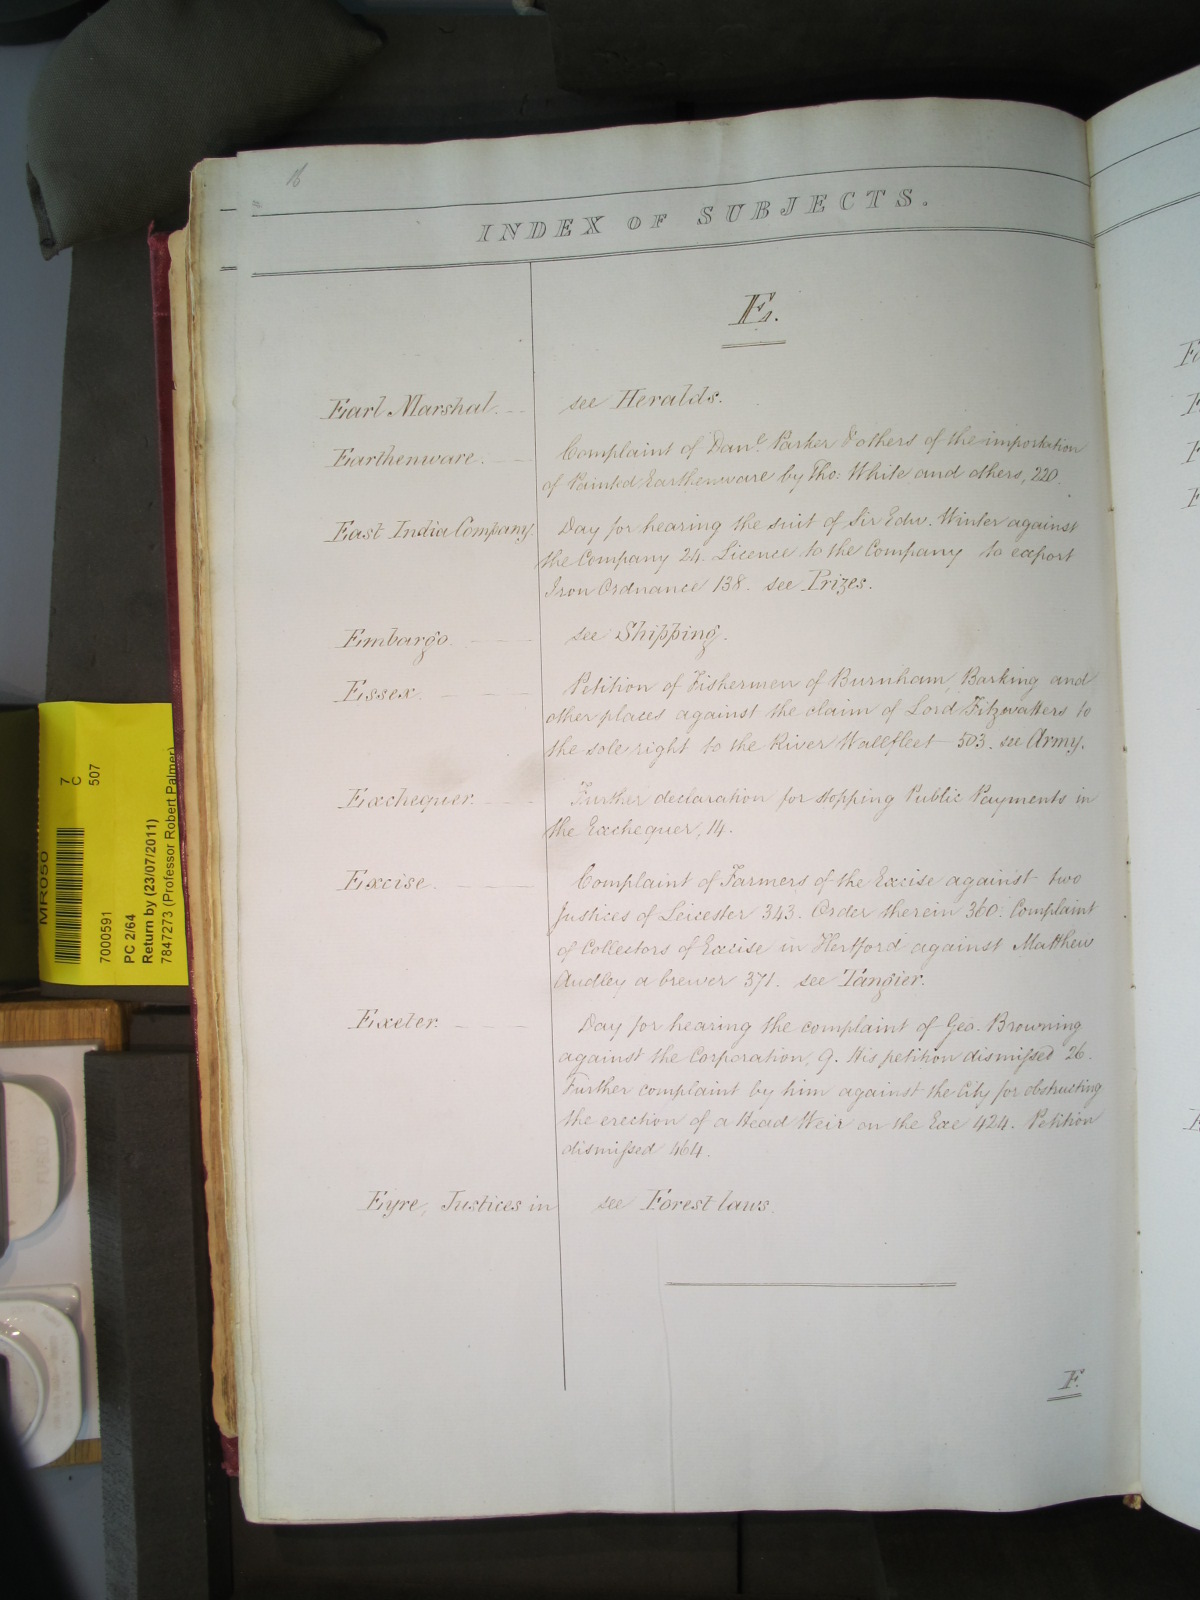 16
INDEX OF SUBJECTS.
E.
Earl Marshal. see Heralds.
Earthenware. Complaint of Danl. Parker & others of the importation
of Painted Earthenware by Tho: White and others, 220.
East India Company. Day for hearing the suit of Sir Edw. Winter against
the Company 24. Licence to the Company to export
Iron Ordnance 138. see Prizes.
Embargo. see Shipping.
Essex. Petition of Fishermen of Burnham, Barking and
other places against the claim of Lord Fitzwatters to
the sole right to the River Wallfleet 503. see Army.
Exchequer. Further declaration for stopping Public Payments in
the Exchequer, 14.
Excise. Complaint of Farmers of the Excise against two
Justices of Leicester 343. Order therein 360. Complaint
of Collectors of Excise in Hertford against Matthew
Audley a brewer 371. see Tangier.
Exeter. Day for hearing the complaint of Geo. Browning
against the Corporation, 9. His petition dismissed 26.
Further complaint by him against the City for obstructing
the erection of a Head Weir on the Exe 424. Petition
dismissed 464.
Eyre, Justices in see Forest laws.
F.
7
C
507
MR050
7000591
PC 2/64
Return by (23/07/2011)
7847273 (Professor Robert Palmer)